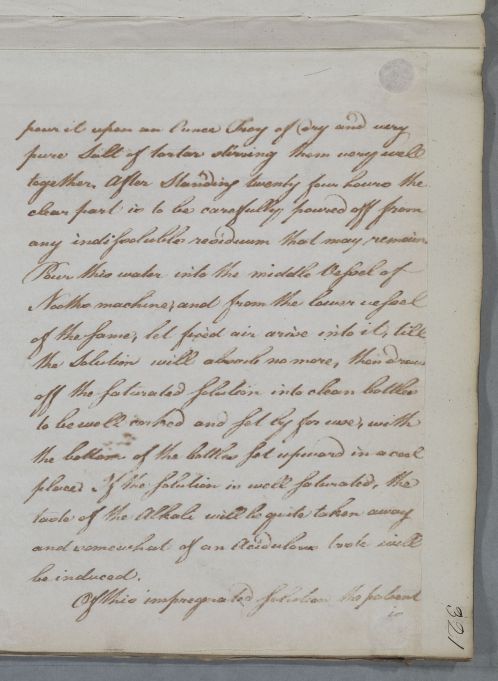 pour it upon an Ounce Troy of (dry and very
pure Salt of tartar stirring them very well
together. After Standing twenty four hours the
clear part is to be carefully poured off from
any indissoluble residuum that may remain
Pour this water into the middle Vessel of
Nooths machine, and from the lower vessel
of the same, let fixed air arise into it, till
the Solution will absorb no more, then draw
off the saturated solution into clean bottles
to be well corked and set by for use, with
the bottom of the bottles set upward in a cool
place. If the solution is well saturated, the
taste of the Alkali will be quite taken away
and somewhat of an acidulous taste will
be induced.
Of this impregnated solution the patient
is
321